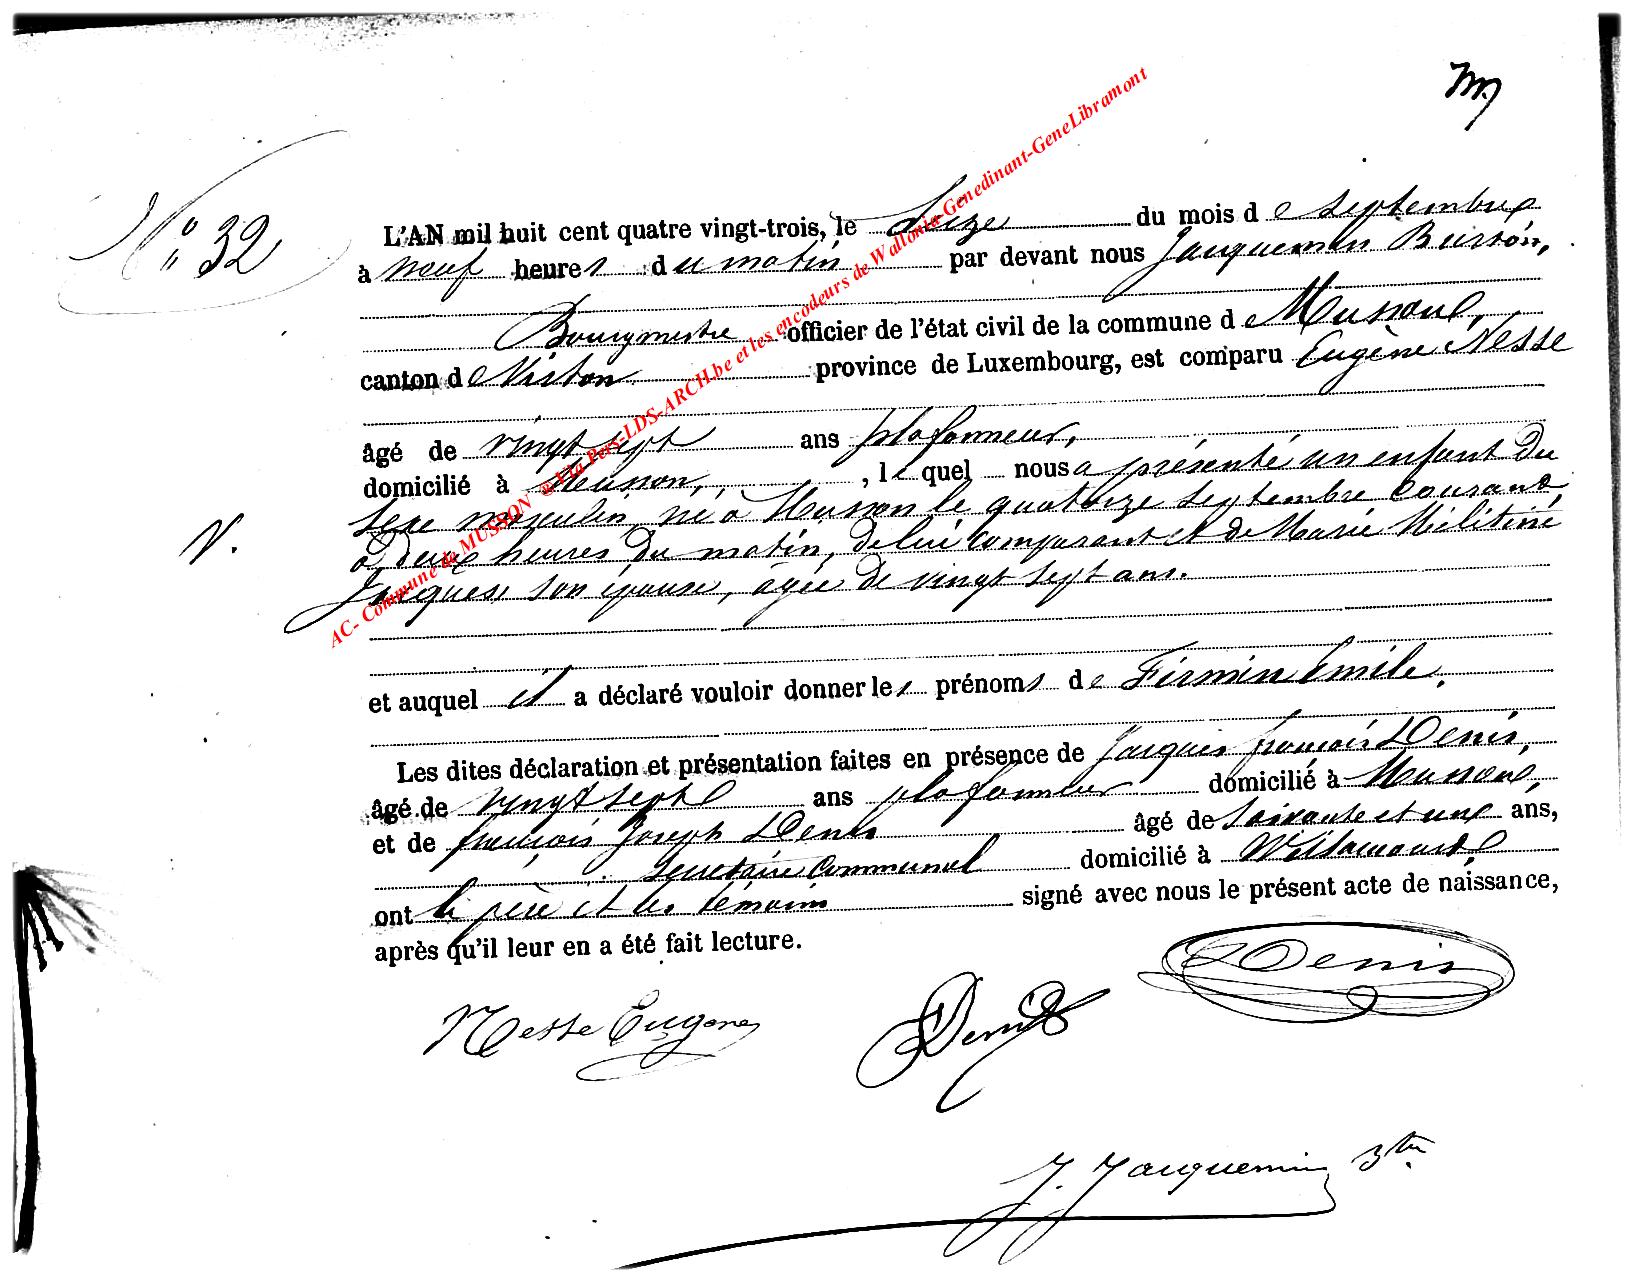 m
N° 32
L'AN mil huit cent quatre vingt-trois, le seize du mois de septembre
à neuf heures du matin par devant nous Jacquemin
Bourgmestre officier de l'état civil de la commune de Musson,
canton de Virton province de Luxembourg, est comparu Eugène Nesse
âgé de vingt sept ans plafonneur,
domicilié à Musson, , lequel nous a présenté un enfant du
sexe masculin, né à Musson le quatorze septembre courant,
à deux heures du matin, de lui comparant et de Marie
son épouse, âgée de vingt sept ans.
V.
et auquel il a déclaré vouloir donner les prénoms de Firmin Emile.
Les dites déclaration et présentation faites en présence de Jacques françois Denis,
âgé de vingt sept ans plafonneur domicilié à Musson,
et de françois Joseph Denis âgé de soixante et une ans,
secrétaire communal domicilié à Willancourt,
ont le père et les témoins signé avec nous le présent acte de naissance,
après qu'il leur en a été fait lecture.
Nesse Eugene Denis Denis
J. Jacquemin
AC- Commune de MUSSON @ Ula Pers-LDS-ARCH.be et les encodeurs de Wallonia-Genedinant-GeneLibramont